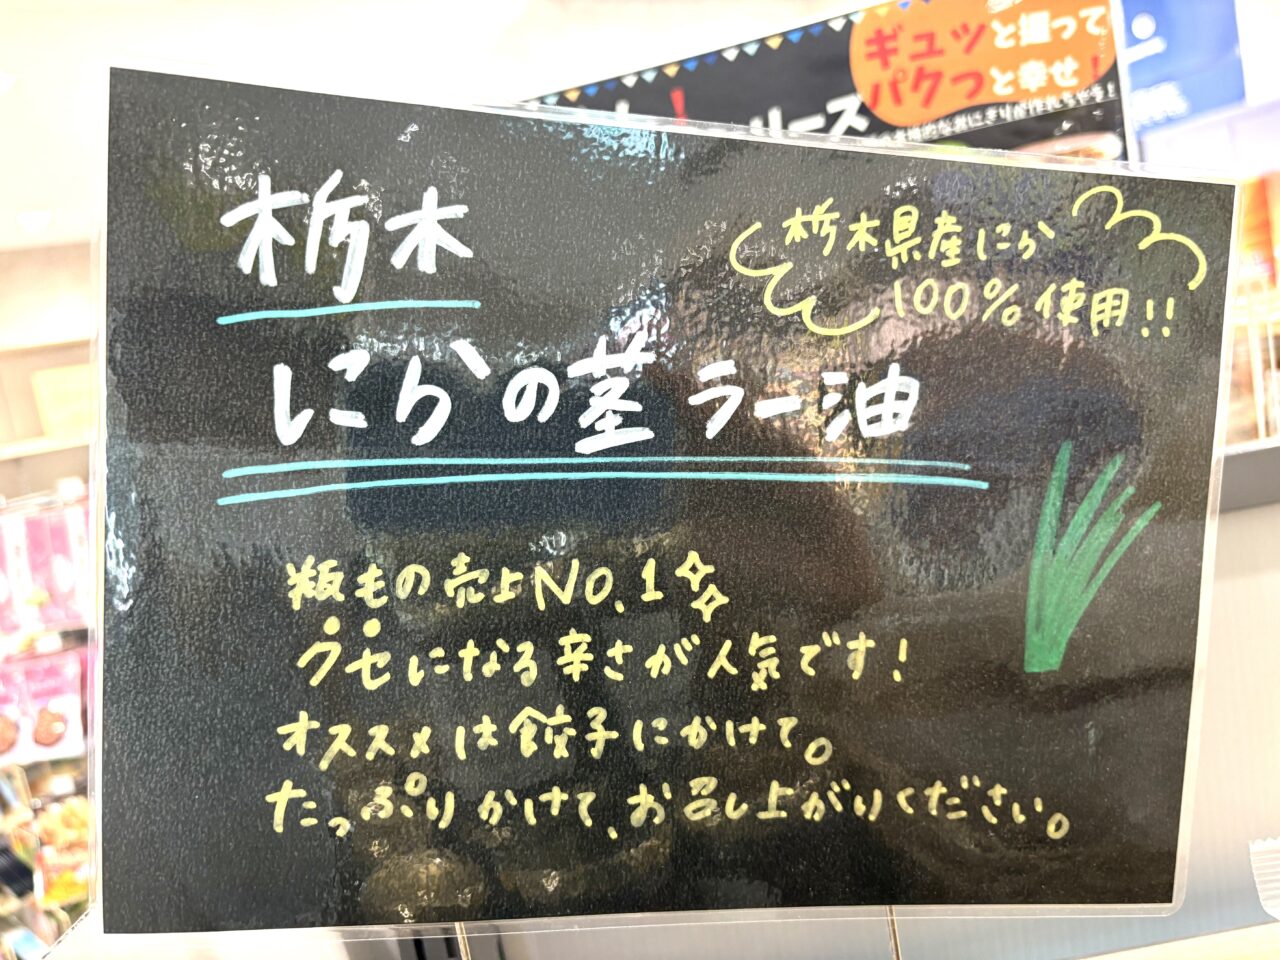 ギュッと握って
パクっと幸せ!
リーズ
栃木
栃木県産にら
100%使用!!
にらの茎ラー油
瓶もの売上NO.1
クセになる辛さが人気です!
オススメは餃子にかけて。
たっぷりかけて、お召し上がりください。